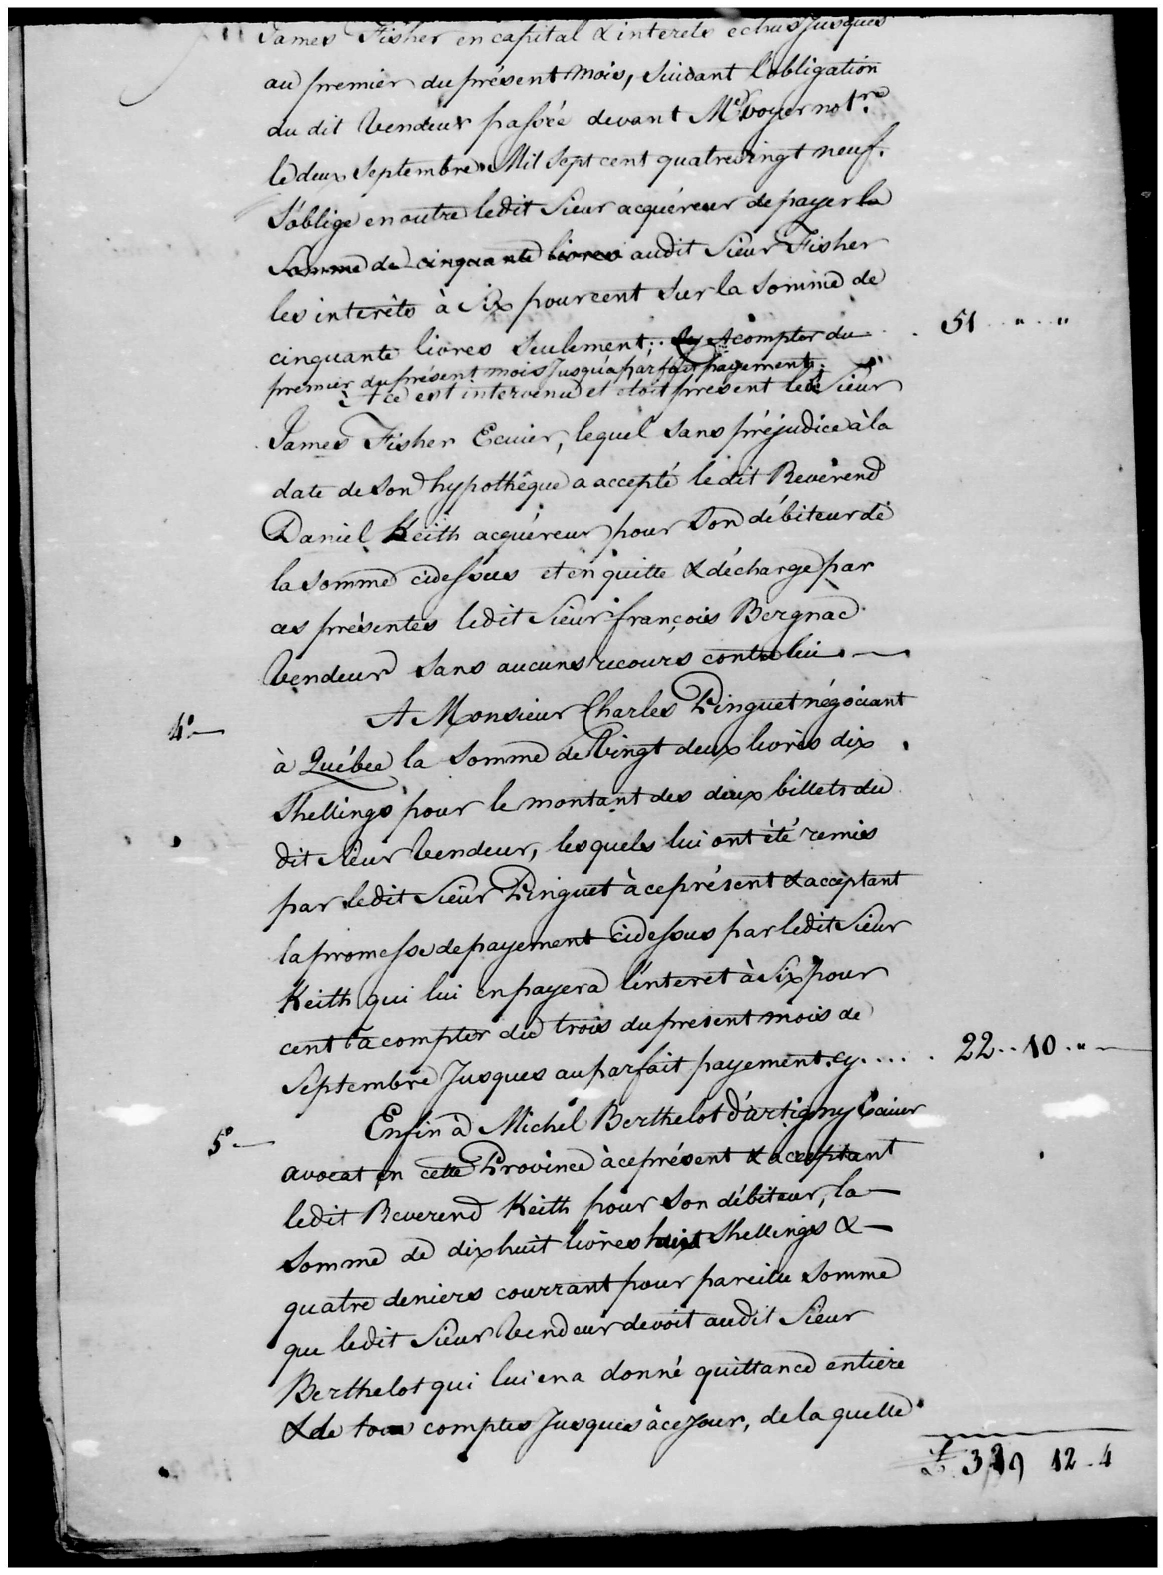 James Fisher en capital & interets echus Jusques
au premier du présent mois, suivant l'obligation
du dit Vendeur passée devant Me Voyer notre
le deux Septembre Mil Sept cent quatrevingt neuf.
S'oblige en outre ledit Sieur acquéreur de payer la
Somme de cinquante livres audit Sieur Fisher
les interêts à Six pourcent sur la Somme de
cinquante livres Seulement; cy A compter du . 51 .. " .. "
premier du présent mois Jusqu'à parfait payement.
à ce est intervenu et etoit présent le dt Sieur
James Fisher Ecuier, lequel sans préjudice à la
date de son hypothêque a accepté ledit Reverend
Daniel Keith acquéreur pour son débiteur de
la somme cidessus et en quitte & décharge par
ces présentes ledit Sieur françois Bergnac
Vendeur sans aucuns recours contre lui. —
4°— A Monsieur Charles Pinguet négociant
à Québec la Somme de Vingt deux livres dix
Shellings pour le montant des deux billets du
dit Sieur Vendeur, lesquels lui ont été remis
par ledit Sieur Pinguet à ce présent & acceptant
la promesse de payement cidessus par ledit Sieur
Keith qui lui en payera l'interet à Six pour
cent à compter du trois du present mois de
Septembre Jusques au parfait payement. cy.... . 22 .. 10 . " —
5°— Enfin à Michel Berthelot d'artigny Ecuier
avocat en cette Province à ce présent & acceptant
ledit Reverend Keith pour son débiteur, la —
Somme de dixhuit livres huit Shellings & —
quatre deniers courrant pour pareille somme
que ledit Sieur Vendeur devoit audit Sieur
Berthelot qui lui en a donné quittance entière
& de tous comptes Jusques à ce jour, de laquelle
£ 12 . 4